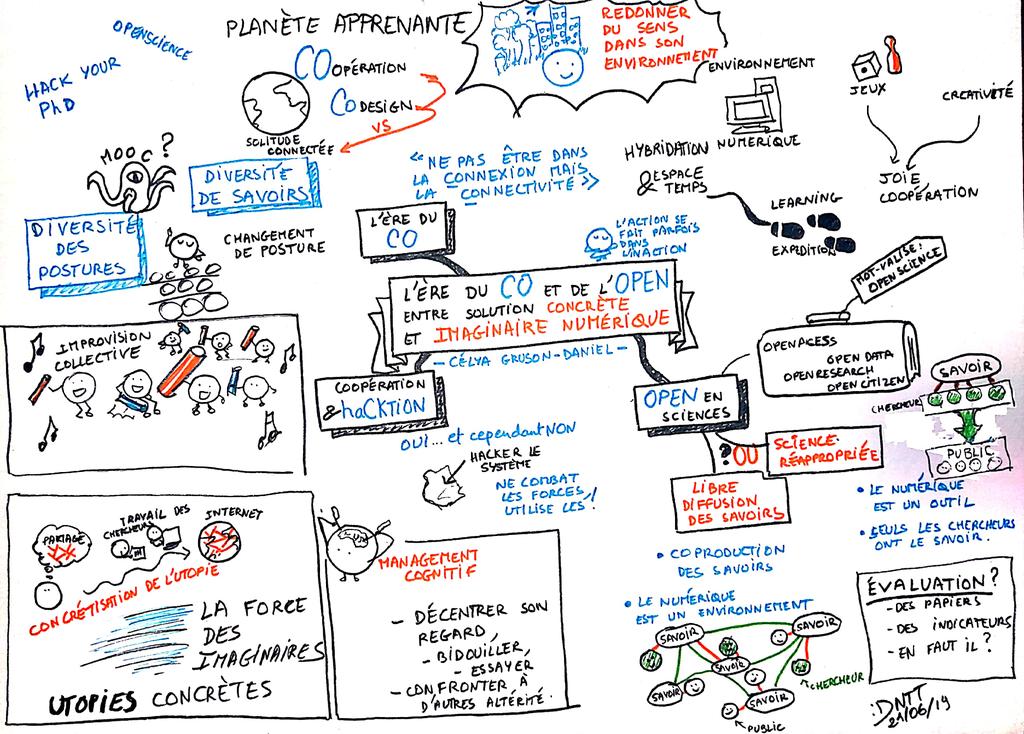 OPENSCIENCE
HACK YOUR
PhD
PLANÈTE APPRENANTE
COOPÉRATION
CODESIGN
VS
SOLITUDE
CONNECTÉE
REDONNER
DU SENS
DANS SON
ENVIRONNEMENT
ENVIRONNEMENT
NUMÉRIQUE
HYBRIDATION
& ESPACE
TEMPS
LEARNING
EXPEDITION
JEUX
CREATIVITÉ
JOIE
COOPÉRATION
MOOC ?
DIVERSITÉ
DE SAVOIRS
DIVERSITÉ
DES
POSTURES
CHANGEMENT
DE POSTURE
« NE PAS ÊTRE DANS
LA CONNEXION MAIS
LA CONNECTIVITÉ »
L'ÈRE DU
CO
L'ACTION SE
FAIT PARFOIS
DANS
L'INACTION
L'ÈRE DU CO ET DE L'OPEN
ENTRE SOLUTION CONCRÈTE
ET IMAGINAIRE NUMÉRIQUE
- CÉLYA GRUSON-DANIEL -
MOT-VALISE:
OPEN SCIENCE
OPENACESS
OPEN DATA
OPENRESEARCH
OPEN CITIZEN
IMPROVISION
COLLECTIVE
COOPÉRATION
& haCKTION
OUI... et cependant NON
HACKER LE
SYSTÈME
NE COMBAT
LES FORCES,
UTILISE LES !
OPEN EN
SCIENCES
? OU
SCIENCE-
RÉAPPROPRIÉE
LIBRE
DIFFUSION
DES SAVOIRS
SAVOIR
CHERCHEUR
PUBLIC
• LE NUMÉRIQUE
EST UN OUTIL
• SEULS LES CHERCHEURS
ONT LE SAVOIR.
PARTAGE
TRAVAIL DES
CHERCHEURS
INTERNET
CONCRÉTISATION DE L'UTOPIE
LA FORCE
DES
IMAGINAIRES
UTOPIES CONCRÈTES
MANAGEMENT
COGNITIF
- DÉCENTRER SON
REGARD,
- BIDOUILLER,
- ESSAYER
- CONFRONTER À
D'AUTRES ALTÉRITÉ.
• COPRODUCTION
DES SAVOIRS
• LE NUMÉRIQUE
EST UN ENVIRONNEMENT
SAVOIR
SAVOIR
SAVOIR
SAVOIR
SAVOIR
CHERCHEUR
PUBLIC
ÉVALUATION ?
- DES PAPIERS
- DES INDICATEURS
- EN FAUT IL ?
:DNTT
21/06/19